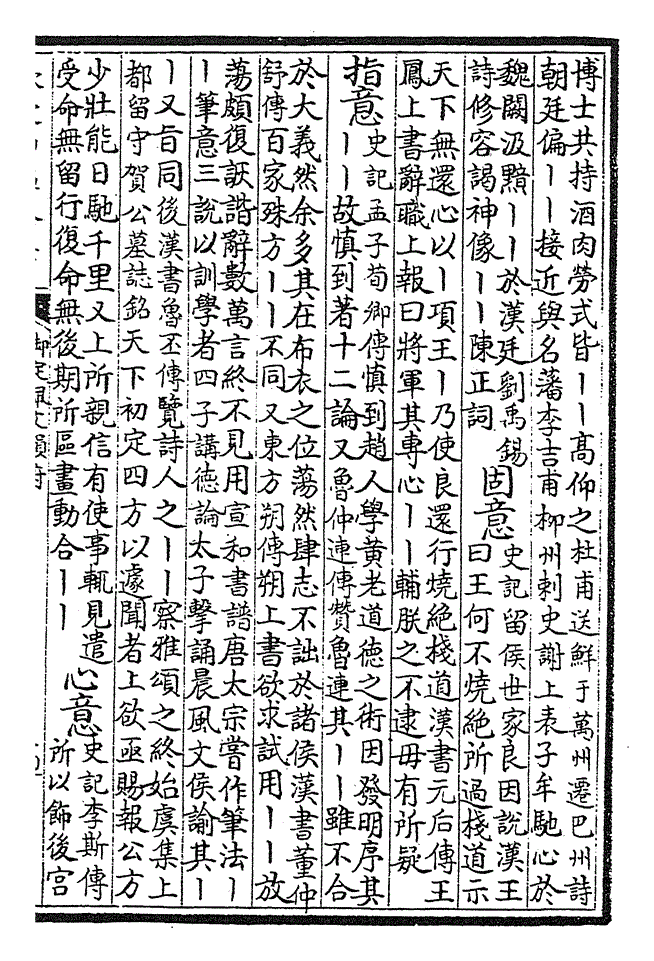 博士共持酒肉勞式皆丨丨高仰之杜甫送鮮于萬州遷巴州詩
朝廷偏丨丨接近與名藩李吉甫柳州刺史謝上表子牟馳心於
魏闕汲黯丨丨於漢廷劉禹錫
詩修容謁神像丨丨陳正詞
固意
史記留侯世家良因說漢王
曰王何不燒絶所過棧道示
天下無還心以丨項王丨乃使良還行燒絶棧道漢書元后傳王
鳳上書辭職上報曰將軍其專心丨丨輔朕之不逮毋有所疑
指意
史記孟子荀卿傳慎到趙人學黄老道德之術因發明序其
丨丨故慎到著十二論又魯仲連傳贊魯連其丨丨雖不合
於大義然余多其在布衣之位蕩然肆志不詘於諸侯漢書董仲
舒傳百家殊方丨丨不同又東方朔傳朔上書欲求試用丨丨放
蕩頗復詼諧辭數萬言終不見用宣和書譜唐太宗嘗作筆法丨
丨筆意三說以訓學者四子講德論太子擊誦晨風文侯諭其丨
丨又旨同後漢書魯丕傳覽詩人之丨丨察雅頌之終始虞集上
都留守賀公墓誌銘天下初定四方以遽聞者上欲亟賜報公方
少壯能日馳千里又上所親信有使事輒見遣
受命無留行復命無後期所區畫動合丨丨
心意
史記李斯傳
所以飾後宫
御定佩文韻府